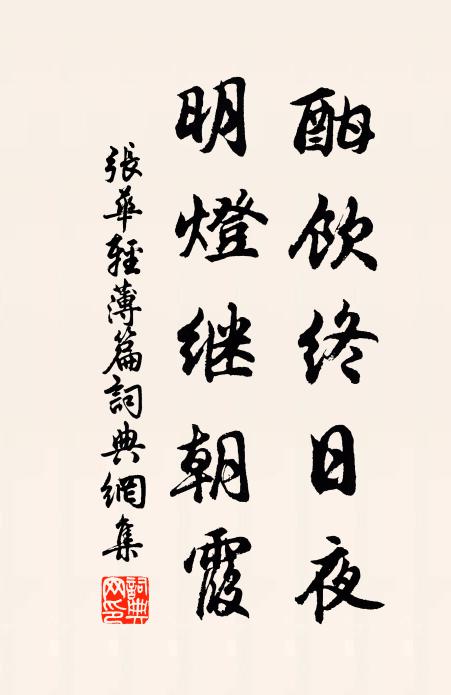 酣飲终日夜
明燈继朝霞
張華輕薄篇詞典網集
詞典網印